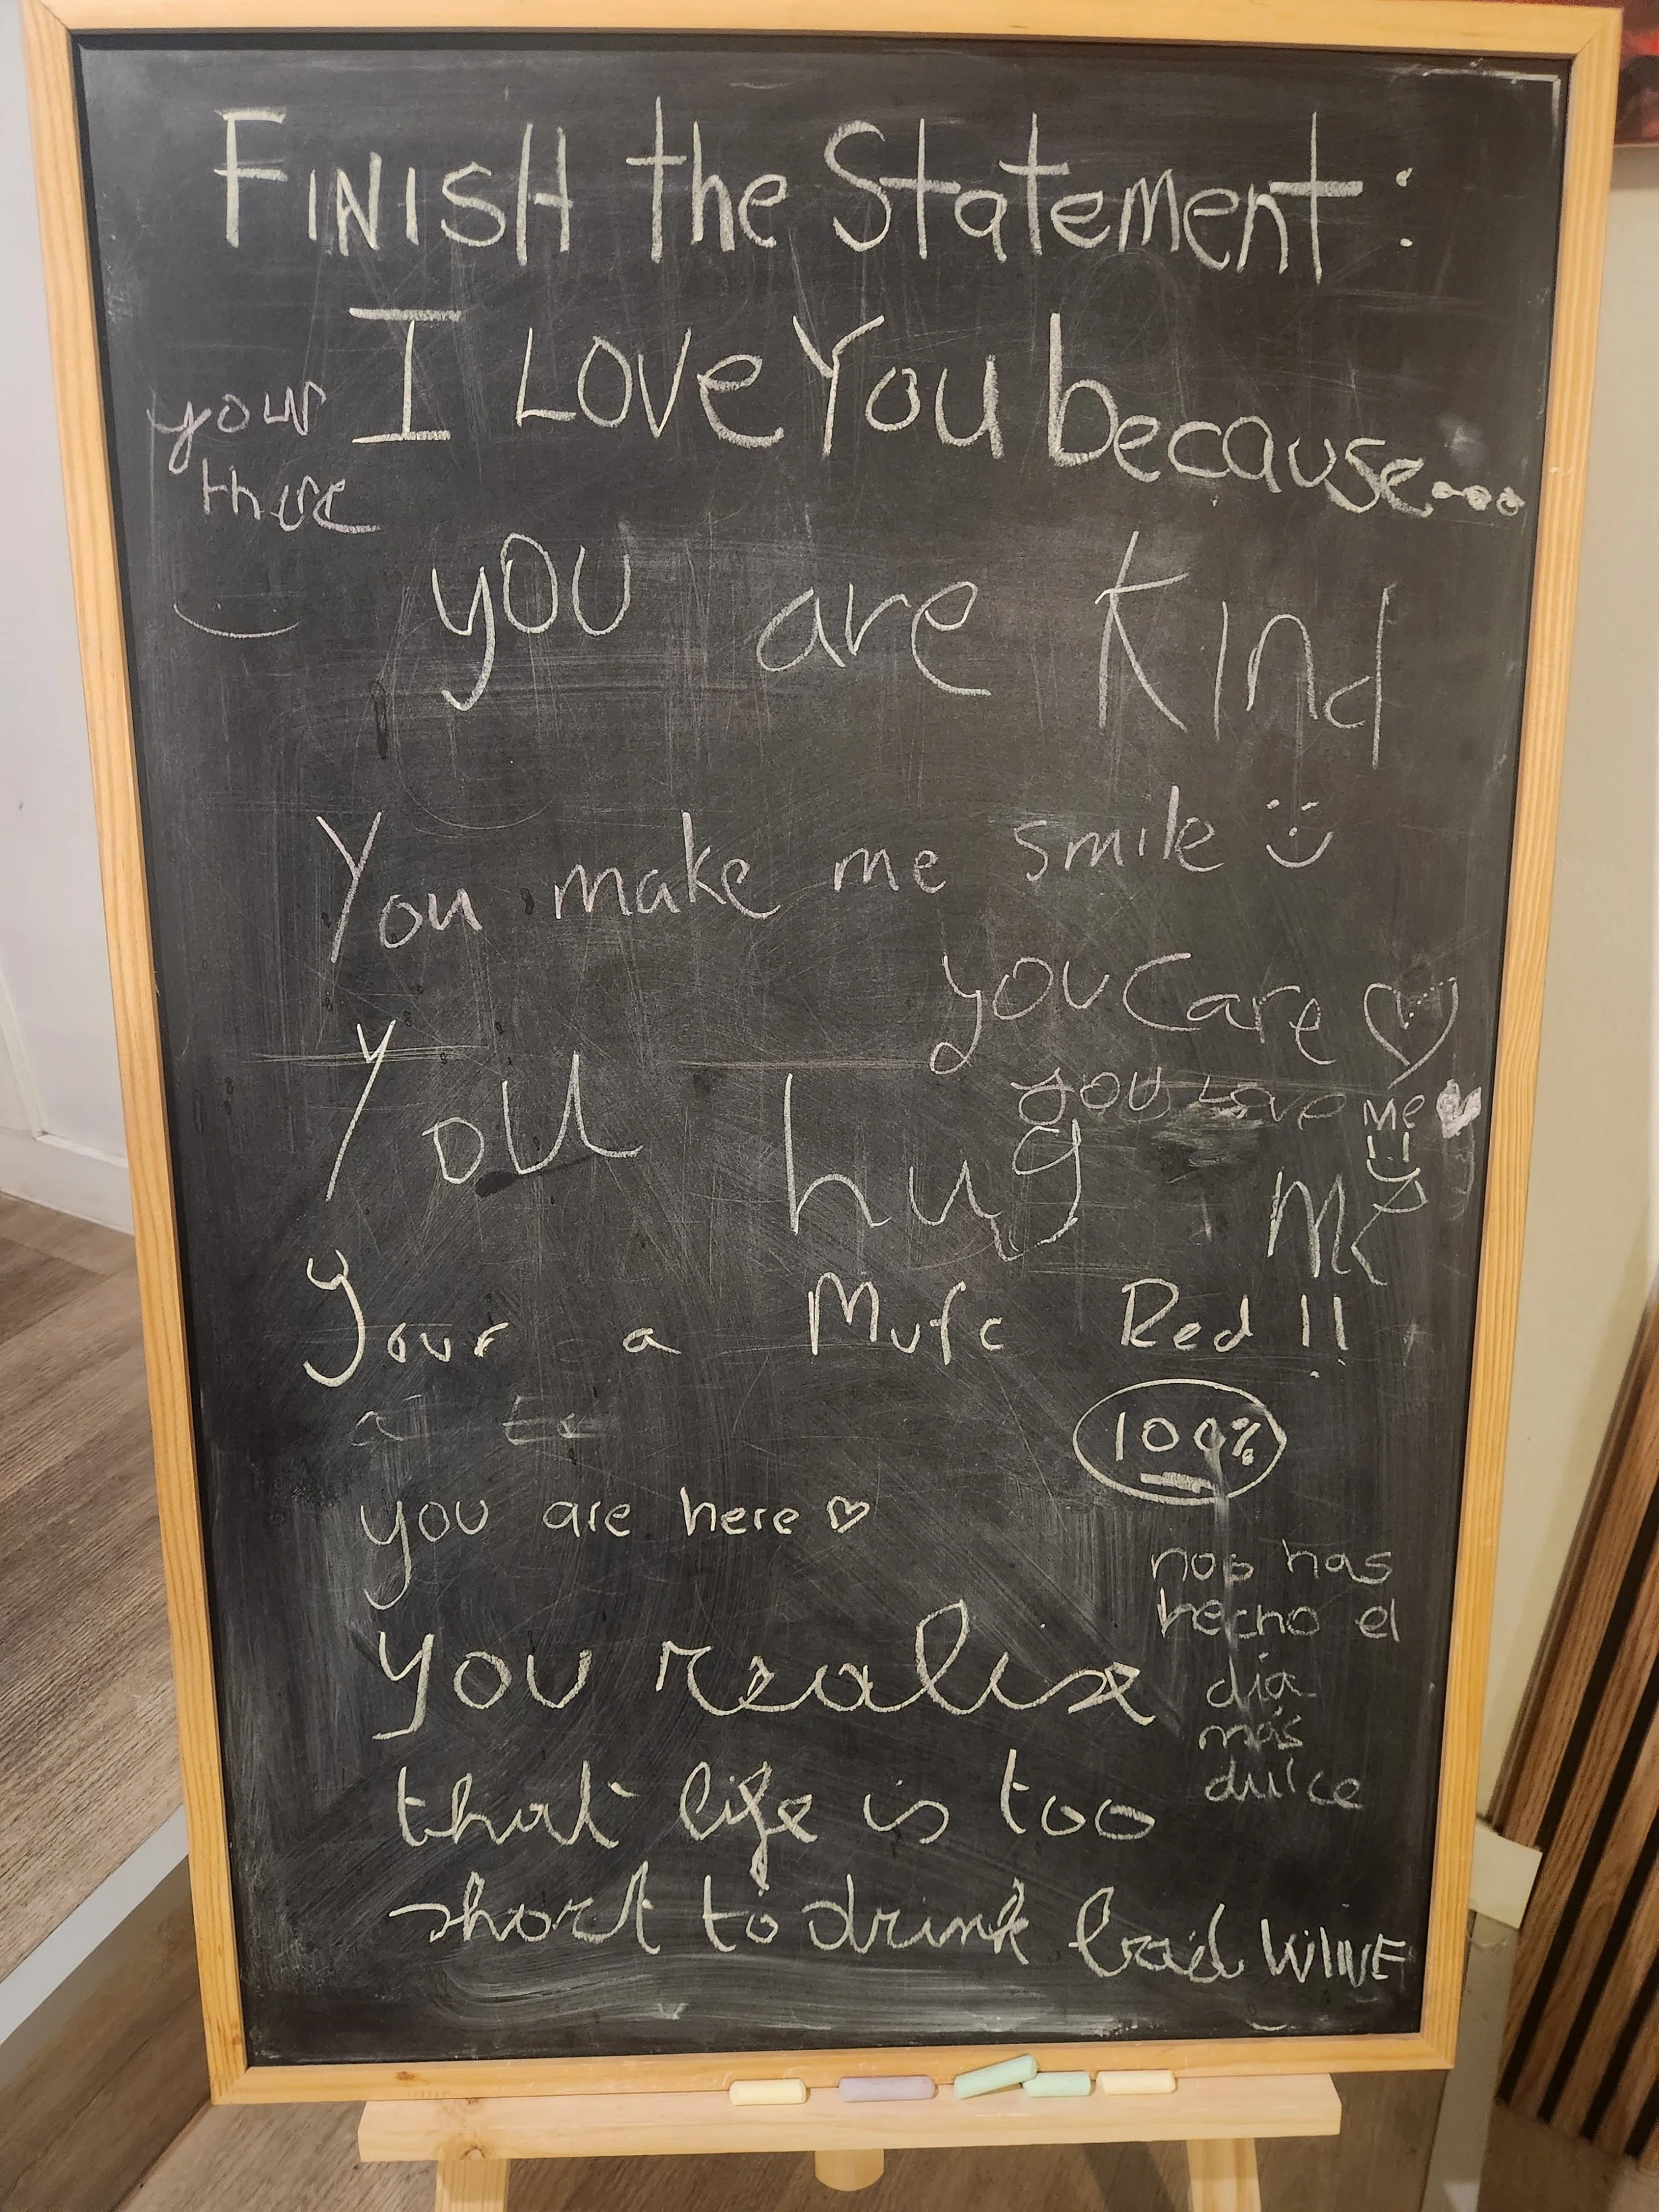 FINISH the Statement:
I Love You because....
your
there
you are Kind
You make me smile
you Care
you Love Me
You hug Me
Your a Mufc Red !!
100%
you are here
nos has
hecho el
día
más
dulce
you realise
that life is too
short to drink bad WINE